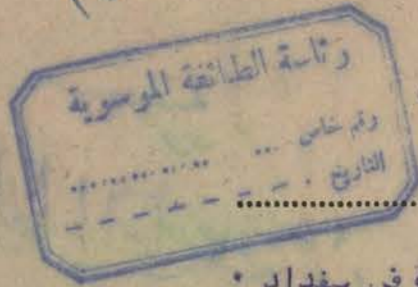 رئاسة الطائفة الموسوية
رقم خاص ... ............
التاريخ . - - - - - -
في بغداد .